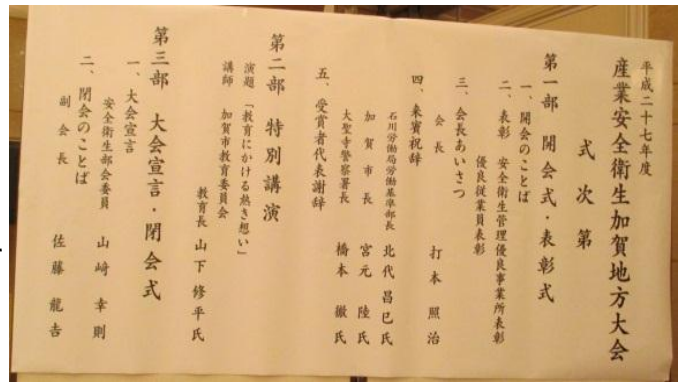 平成二十七年度
産業安全衛生加賀地方大会
式次第
第一部 開会式・表彰式
一、開会のことば
二、表彰 安全衛生管理優良事業所表彰
優良従業員表彰
三、会長あいさつ
会長 打本照治
四、来賓祝辞
石川労働局労働基準部長 北代昌巳氏
加賀市長 宮元陸氏
大聖寺警察署長 橋本徹氏
五、受賞者代表謝辞
第二部 特別講演
演題 「教育にかける熱き想い」
講師 加賀市教育委員会
教育長 山下修平氏
第三部 大会宣言・閉会式
一、大会宣言
安全衛生部会委員 山﨑幸則
二、閉会のことば
副会長 佐藤龍𠮷